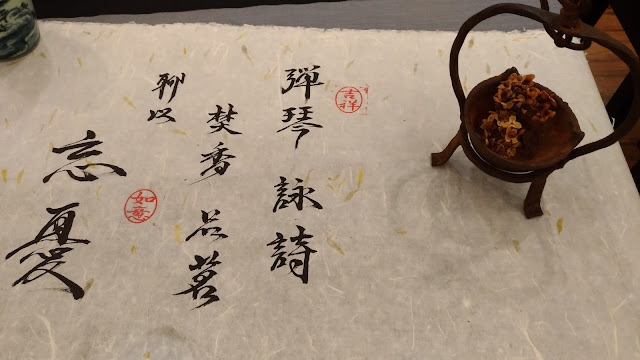 吉祥
彈琴詠詩
焚香品茗
聊以
如意
忘憂